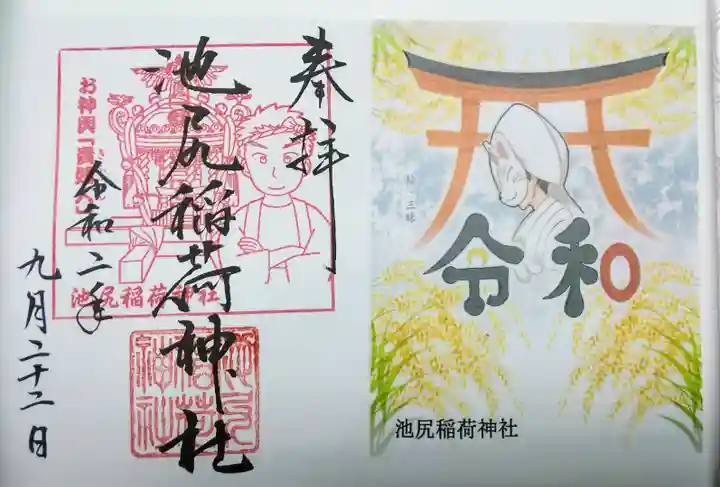 奉拝
池尻稲荷神社
令和二年
九月二十二日
池尻稲荷神社
令和
池尻稲荷神社